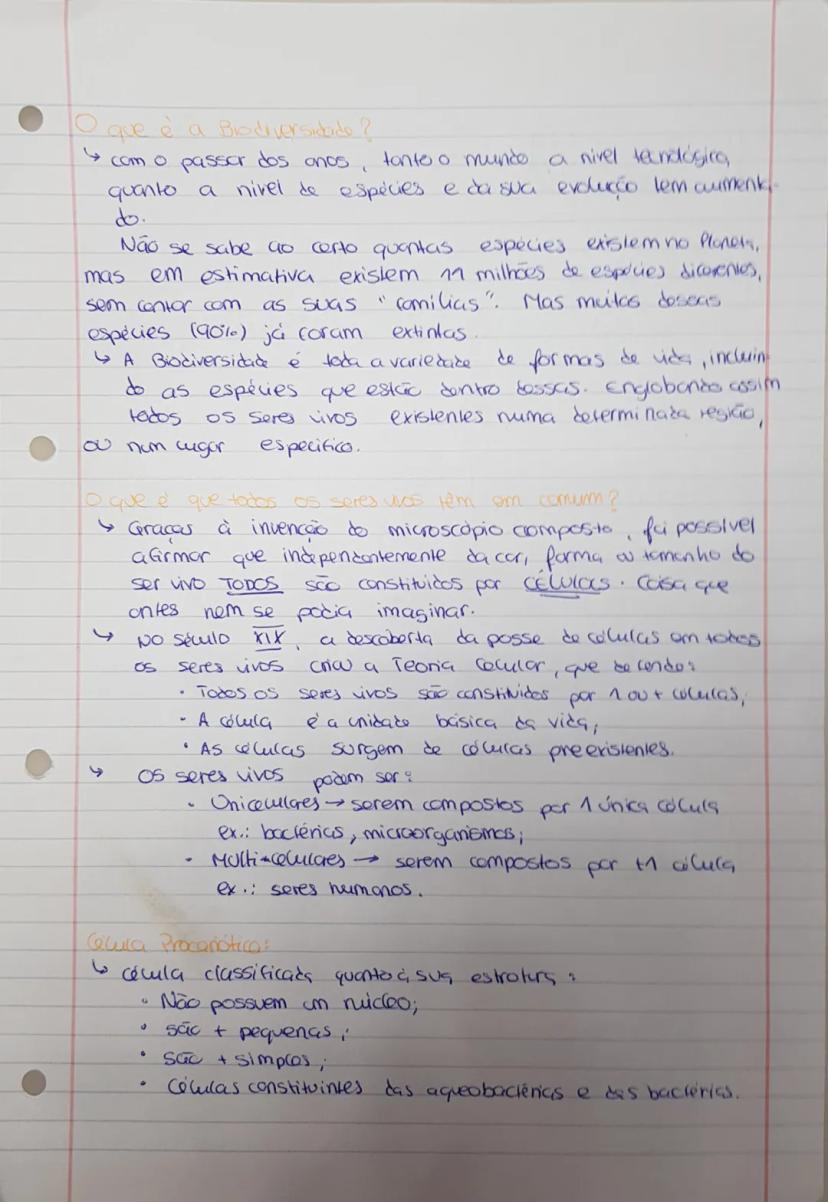 O que é a Biodiversidade?
↳ com o passar dos anos, tanto o mundo a nível tecnológico,
quanto a nivel de espécies e da sua evolução tem aumenta
do.
Não se sabe ao certo quantas espécies existem no Planeta,
mas em estimativa existem 11 milhões de espécies diferentes,
sem contar com as suas "famílias". Mas muitas dessas
espécies (90%) já foram extintas.
↳ A Biodiversidade é toda a variedade de formas de vida, incluin
do as espécies que estão dentro dessas. Englobando assim
todos os seres vivos existentes numa determinada região,
ou num lugar especifico.
O que é que todos os seres vivos têm em comum?
↳ Graças à invenção do microscópio composto, foi possível
afirmar que independentemente da cor, forma ou tamanho do
ser vivo TODOS são constituidos por CÉLULAS. Coisa que
antes nem se podia imaginar.
↳ No século XIX, a descoberta da posse de células em todos
os seres vivos criou a Teoria Celular, que defende:
• Todos os seres vivos são constituidos por 1 ou + células;
• A célula é a unidade básica da vida;
• As células surgem de células preexistentes.
↳ Os seres vivos podem ser:
• Unicelulares → serem compostos por 1 única célula
ex.: bactérias, microorganismos;
• Multi-celulares → serem compostos por +1 célula
ex.: seres humanos.
Célula Procariótica:
↳ célula classificada quanto à sua estrutura:
• Não possuem um núcleo;
• são + pequenas;
• são + simples;
• Células constituintes das aqueobactérias e das bactérias.